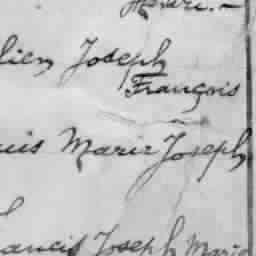 Henri.-
lien Joseph
François
uis Marie Joseph
ancis Joseph Marie